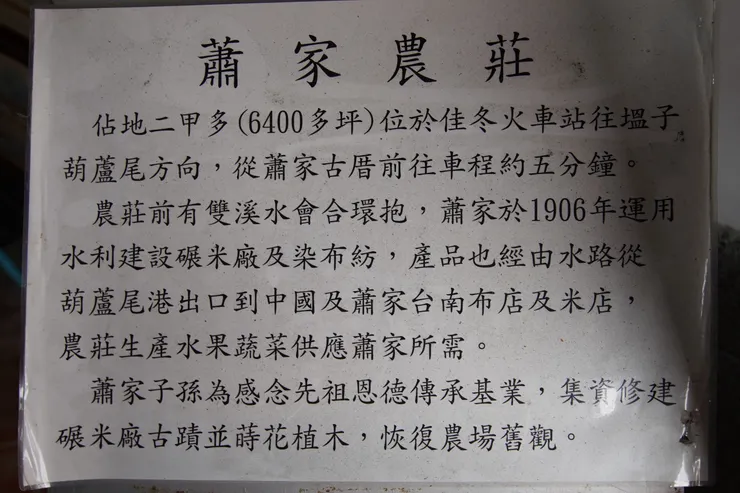 蕭家農莊
佔地二甲多(6400多坪)位於佳冬火車站往塭子
葫蘆尾方向，從蕭家古厝前往車程約五分鐘。
農莊前有雙溪水會合環抱，蕭家於1906年運用
水利建設碾米廠及染布紡，產品也經由水路從
葫蘆尾港出口到中國及蕭家台南布店及米店，
農莊生產水果蔬菜供應蕭家所需。
蕭家子孫為感念先祖恩德傳承基業，集資修建
碾米廠古蹟並蒔花植木，恢復農場舊觀。